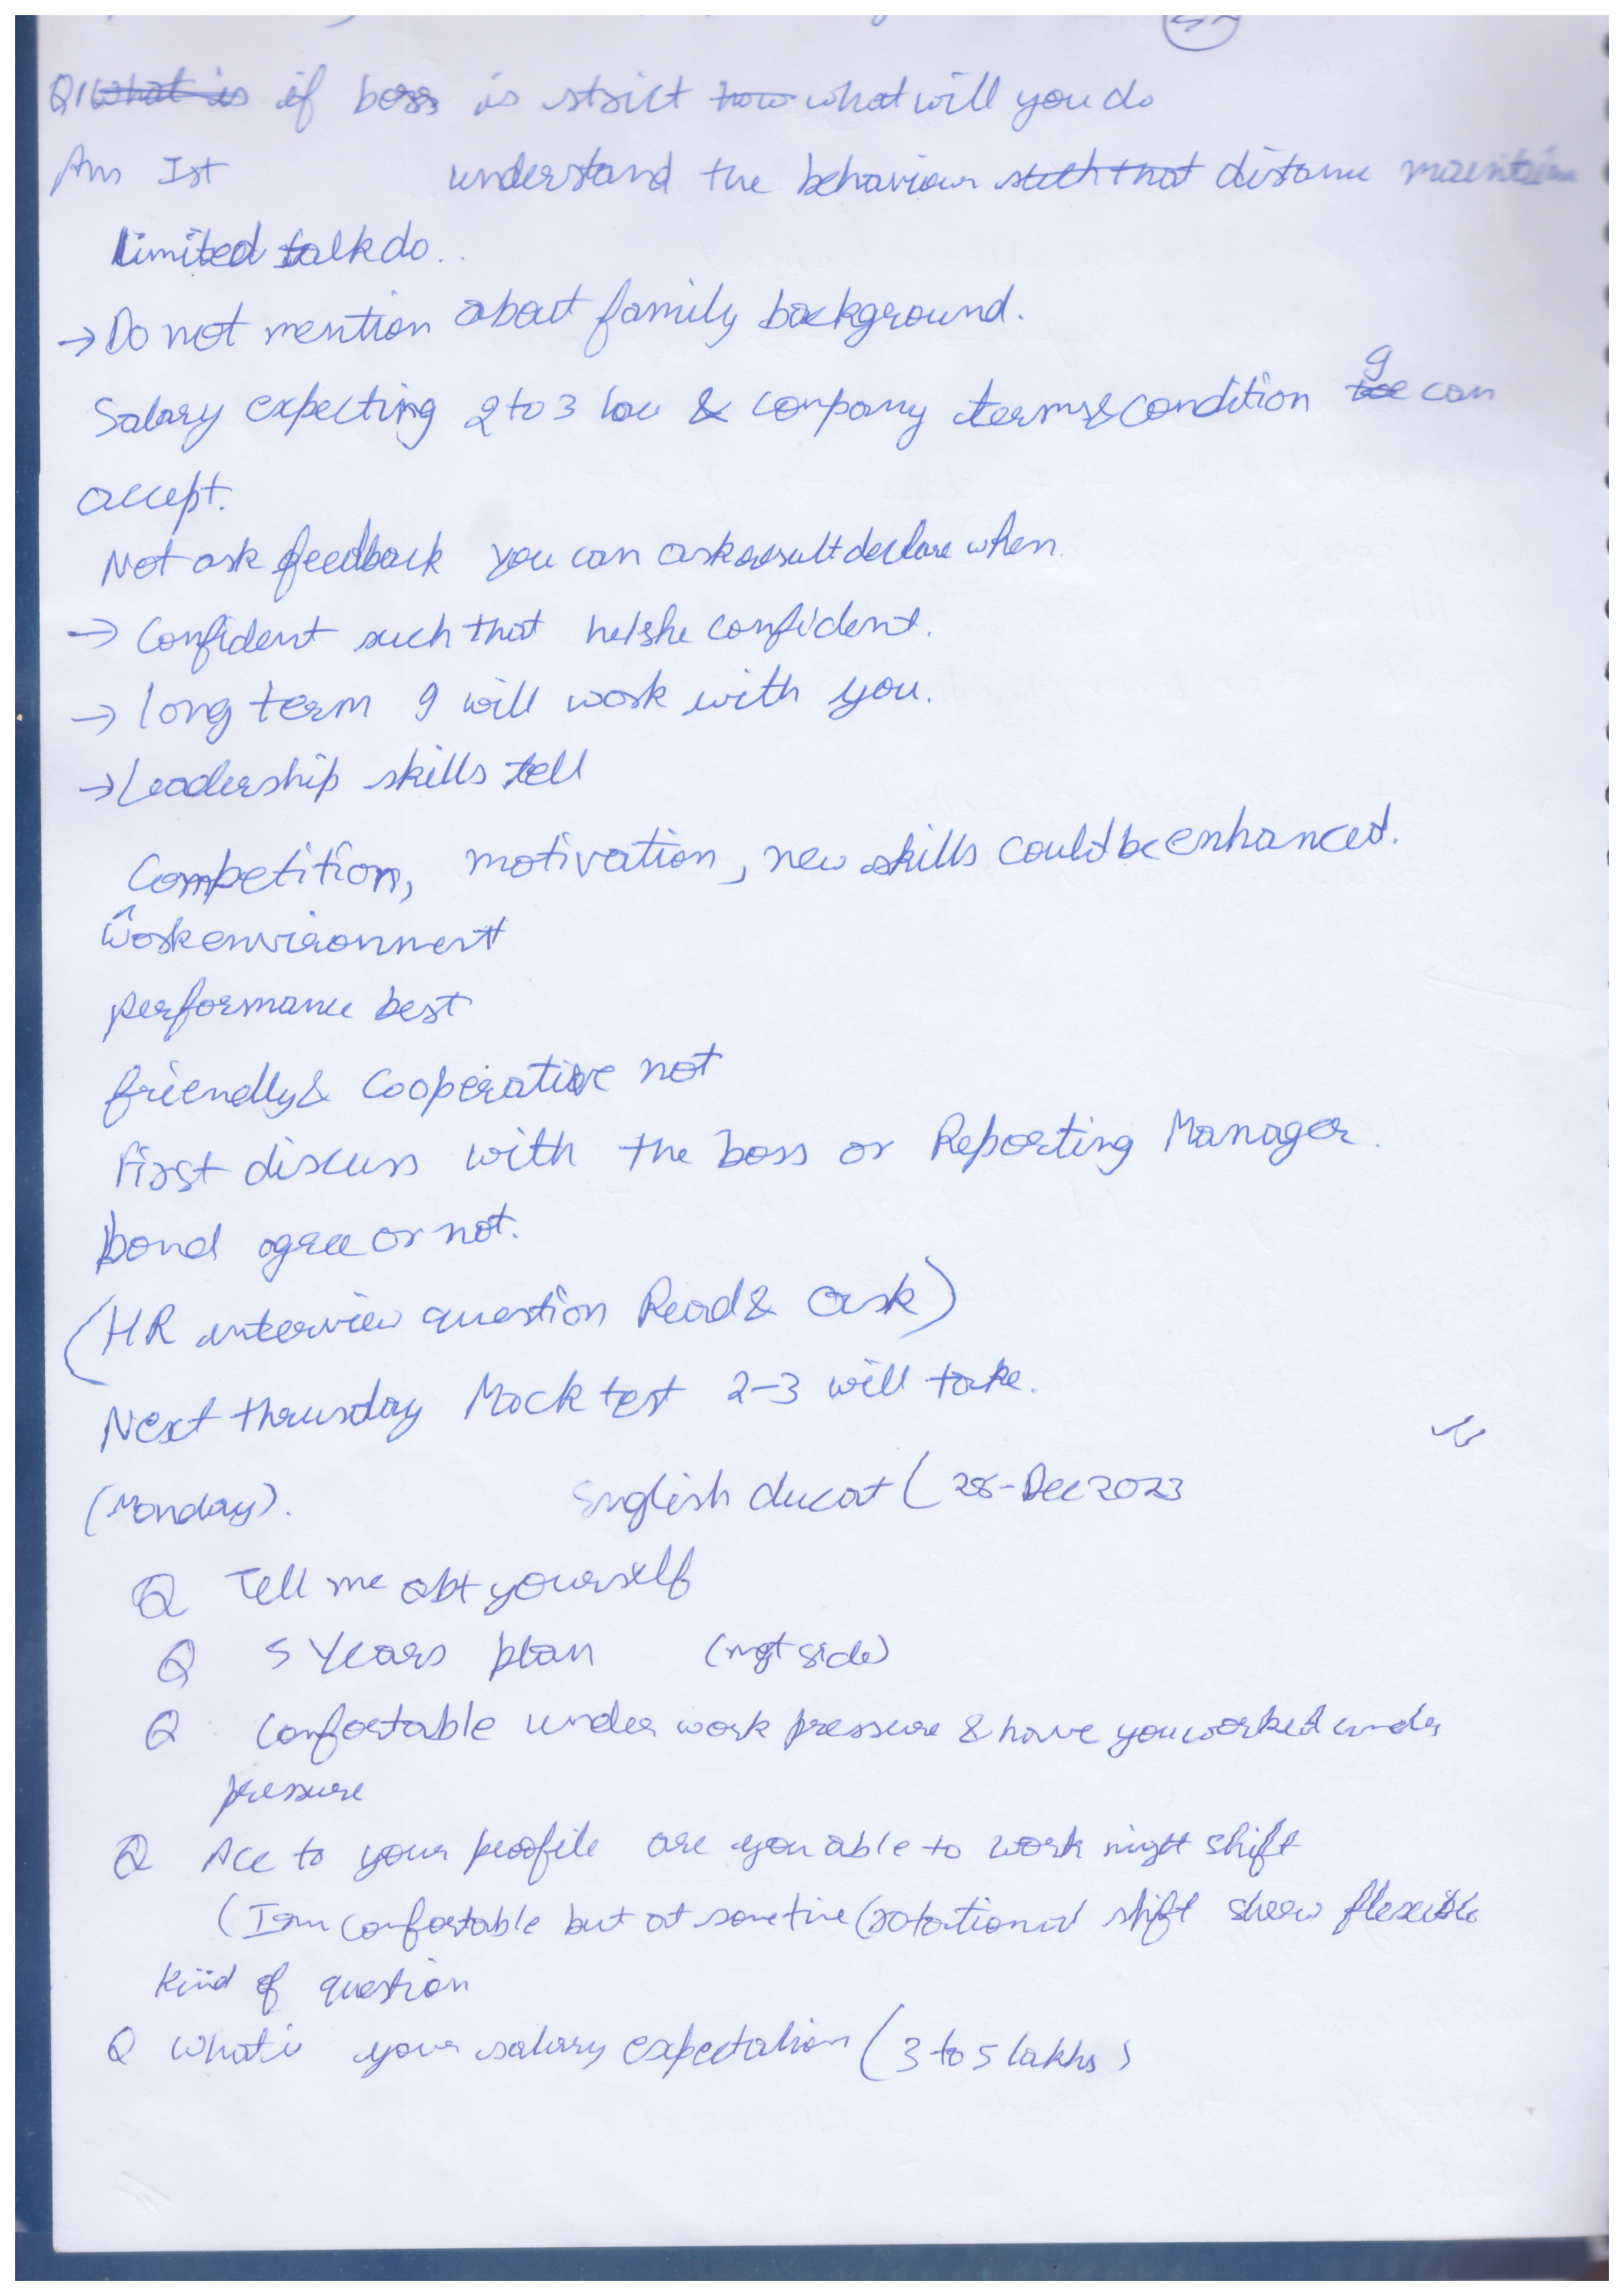 Q1 What is if boss is strict how what will you do
Ans Ist understand the behaviour such that distance maintain
limited talk do..
→ Do not mention about family background.
Salary expecting 2 to 3 lac & company terms & condition I can
accept.
Not ask feedback you can ask result declare when.
→ Confident such that he/she confident.
→ long term I will work with you.
→ Leadership skills tell
Competition, motivation, new skills could be enhanced.
Work environment
performance best
friendly & Cooperative not
First discuss with the boss or Reporting Manager.
bond agree or not.
(HR interview question Read & ask)
Next thrusday Mock test 2-3 will take.
(Monday). English ducat (28-Dec 2023
Q Tell me abt yourself
Q 5 Years plan (mgt side)
Q Comfortable under work pressure & have you worked under
pressure
Q Acc to your profile are you able to work night shift
(I am comfortable but at sometime (rotational shift show flexible
kind of question
Q What is your salary expectation (3 to 5 lakhs)